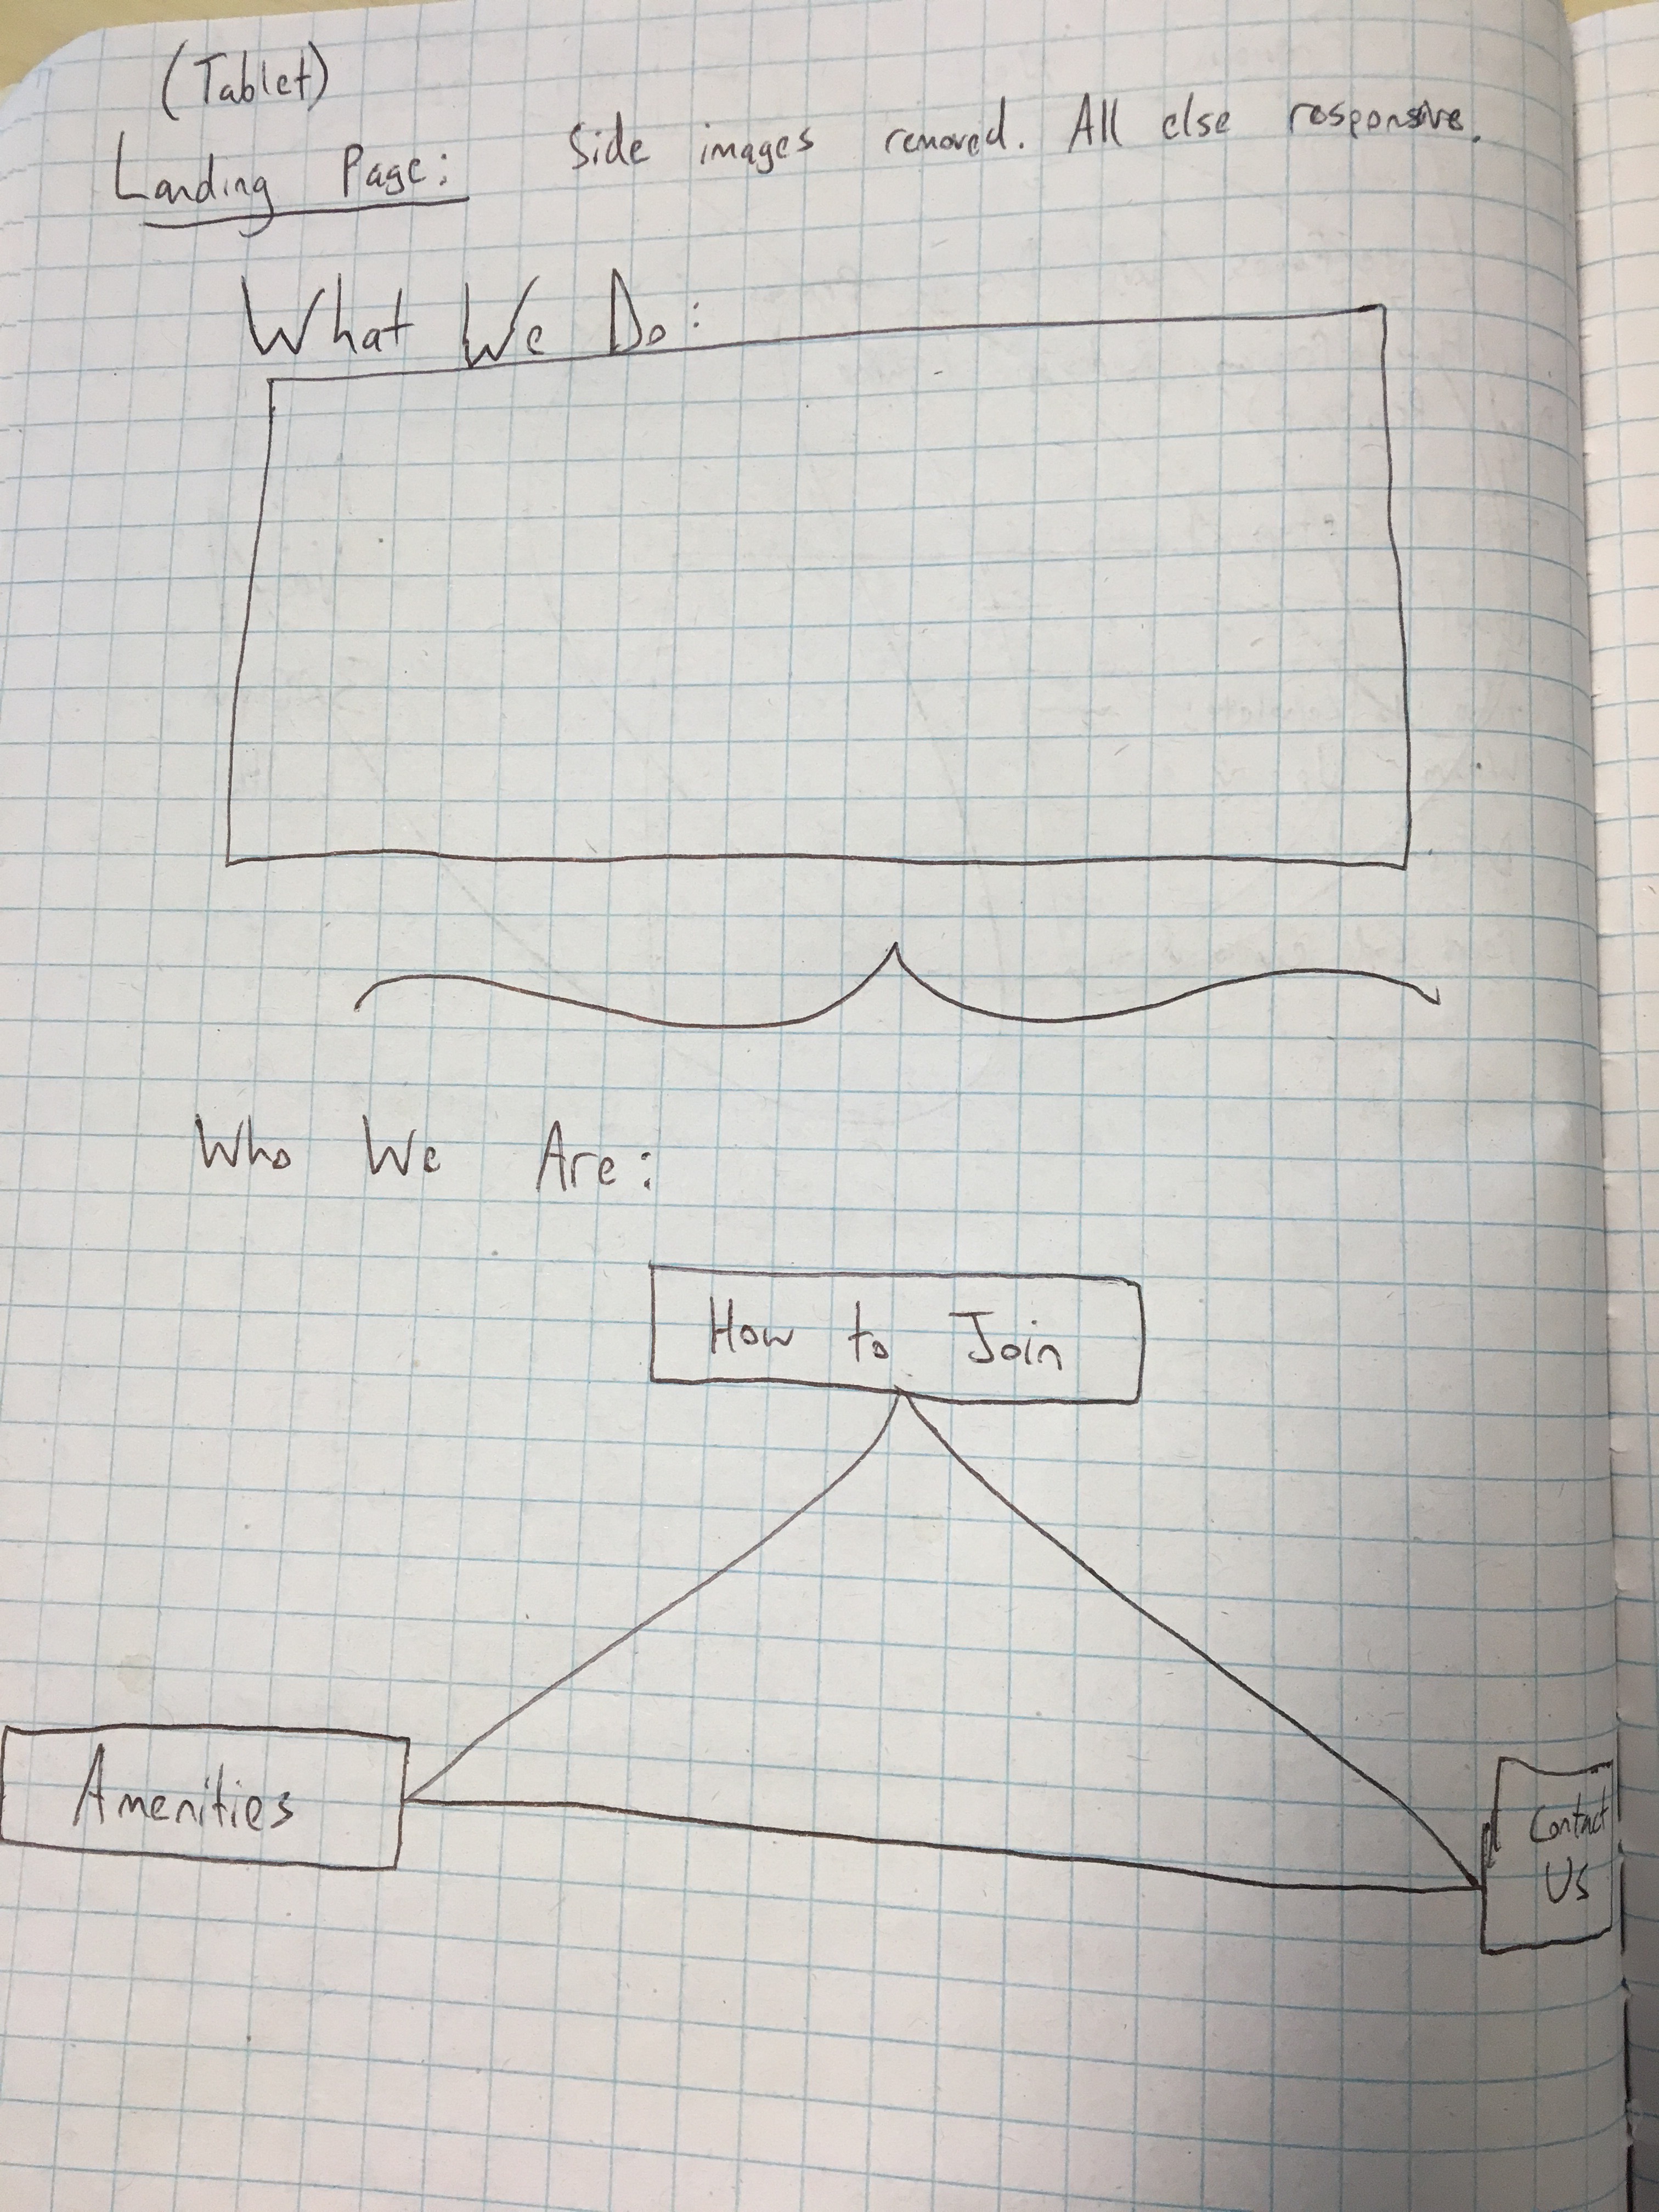 (Tablet)
Landing Page: Side images removed. All else responsive.
What We Do:
Who We Are:
How to Join
Amenities
Contact
Us